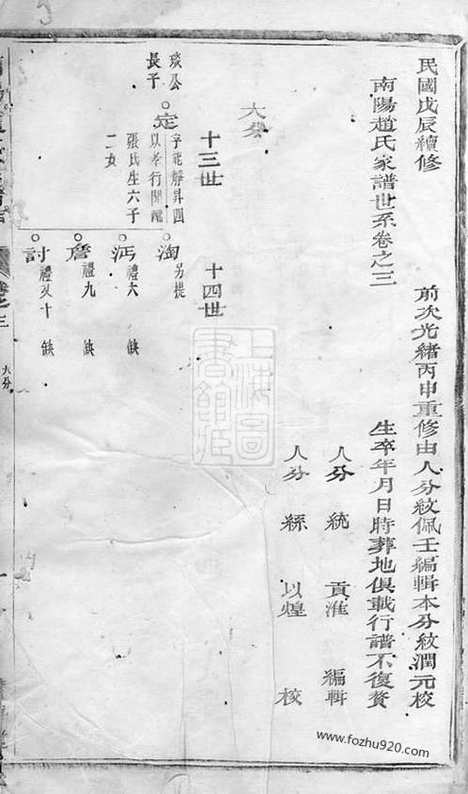 民國戊辰續修 前次光緒丙申重修由人分紋佩壬編輯本分紋潤元校
南陽趙氏家譜世系卷之三 生卒年月日時葬地俱載行譜不復贅
人分統 貢淮 編輯
人分縣 以煌 校
十三世 十四世
六分
定
長子
以孝行聞
張氏生六子
二女
淘 另提
沔 禮六 缺
詹 禮九 缺
討 禮 十 缺
卷之三
六分
上海圖書館
www.fozhu920.com